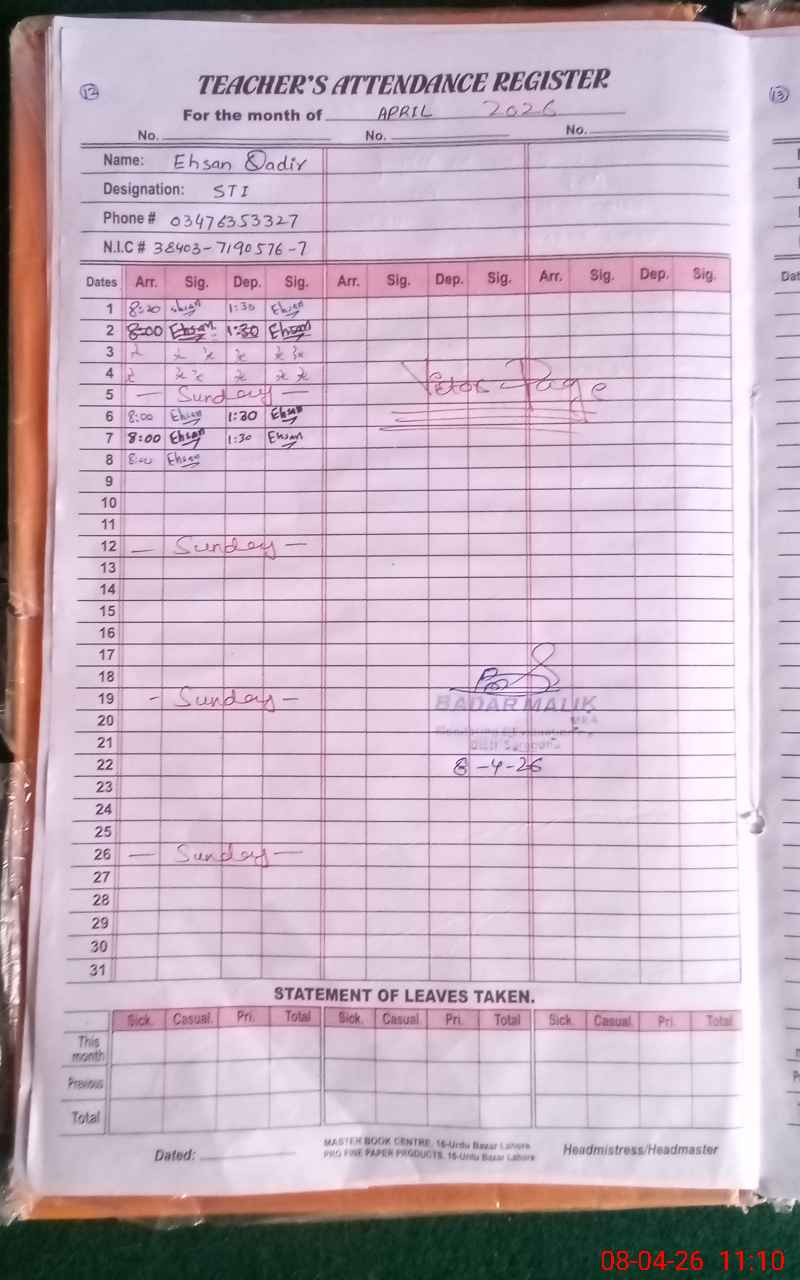 12
13
TEACHER'S ATTENDANCE REGISTER
For the month of APRIL 2026
No. No. No.
Name: Ehsan Qadir
Designation: STI
Phone # 03476353327
N.I.C # 38403-7190576-7
Dates Arr. Sig. Dep. Sig. Arr. Sig. Dep. Sig. Arr. Sig. Dep. Sig.
1 8:20 Ehsan 1:30 Ehsan
2 8:00 Ehsan 1:30 Ehsan
3
4
5 — Sunday —
6 8:00 Ehsan 1:30 Ehsan
7 8:00 Ehsan 1:30 Ehsan
8 8:00 Ehsan
9
10
11
12 — Sunday —
13
14
15
16
17
18
19 - Sunday -
BADAR MALIK
20
MEA
21
22 8-4-26
23
24
25
26 — Sunday —
27
28
29
30
31
STATEMENT OF LEAVES TAKEN.
Sick. Casual. Pri. Total Sick. Casual. Pri. Total Sick. Casual. Pri. Total
This month
Previous
Total
MASTER BOOK CENTRE, 16-Urdu Bazar Lahore
Dated: PRO FINE PAPER PRODUCTS, 16-Urdu Bazar Lahore Headmistress/Headmaster
08-04-26 11:10